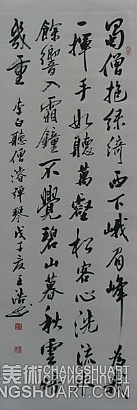 蜀僧抱绿綺西下峨眉峰為我
一揮手如聽萬壑松客心洗流水
餘響入霜鐘不覺碧山暮秋雲暗
幾重 李白聽僧濬彈琴戊子夏王
美術 CHANGSHUART